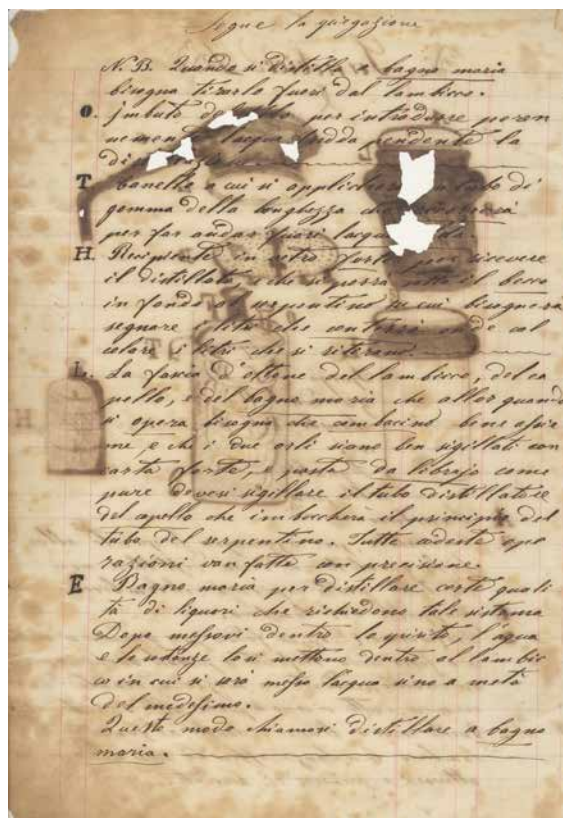 Segue la spiegazione
N. B. Quando si distilla a bagno maria
bisogna tirarlo fuori dal lambicco.
O. Imbuto di per introdurre
acqua fredda pendente la
T banella a cui si tubo di
gomma della lunghezza che
per far andar fuori
H. Recipiente in vetro forte per ricevere
il distillato, e che si porrà sotto il becco
in fondo al serpentino su cui bisognerà
segnare i litri che conterrà onde cal
colare i litri che si ritirano.
L. La fascia di ottone del lambicco, del ca
pello, e del bagno maria che allor quando
si opera bisogna che combacino bene assie
me, e che i due orli siano ben sigillati con
carta forte, e pasta da librajo come
pure devesi sigillare il tubo distillatore
del capello che imboccherà il principio del
tubo del serpentino. Tutte codeste ope
razioni van fatte con precisione.
E Bagno maria per distillare certe quali
tà di liquori che richiedono tale sistema
Dopo messovi dentro lo spirito, l'aqua
e le si mettono dentro al lambic
co in cui si sarà messo l'acqua sino a metà
del medesimo.
Questo modo chiamasi distillare a bagno
maria.